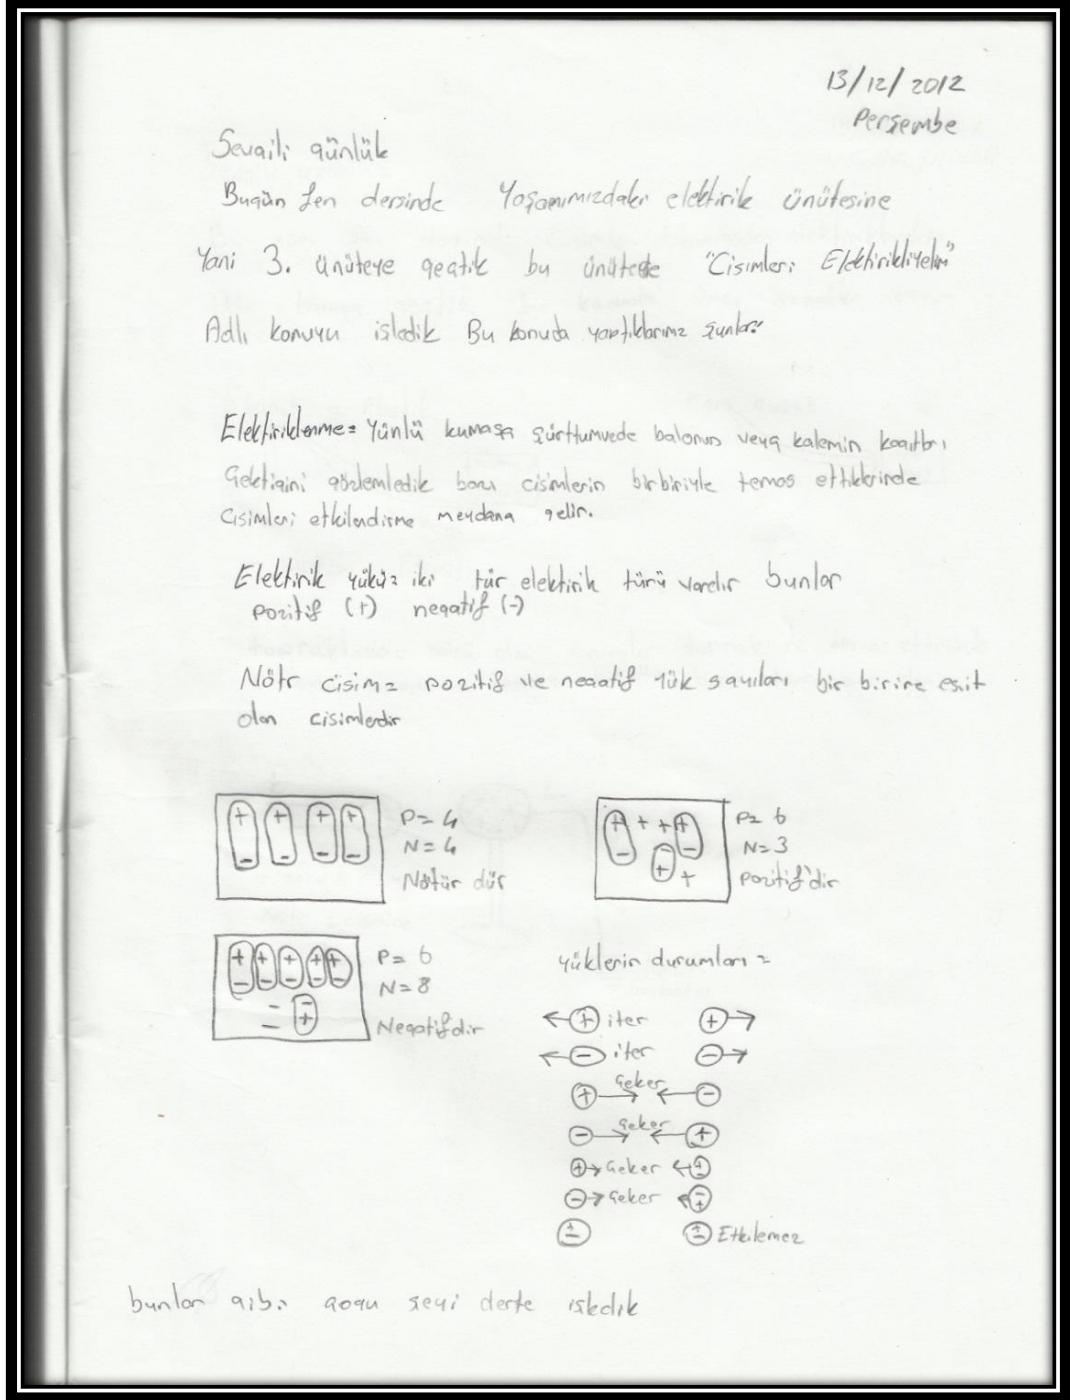 13/12/2012
Perşembe
Sevgili günlük
Bugün fen dersinde Yaşamımızdaki elektirik ünütesine
Yani 3. ünüteye geçtik bu ünütede "Cisimleri Elektirikliyelim"
Adlı konuyu işledik Bu konuda yaptıklarımız şunlar:
Elektiriklenme= Yünlü kumaşa balonun veya kalemin
çektiğini gözlemledik bazı cisimlerin birbiriyle temas ettiklerinde
cisimleri etkilendirme meydana gelir.
Elektirik yükü= iki tür elektirik türü vardır bunlar
pozitif (+) negatif (-)
Nötr cisim= pozitif ve negatif yük sayıları bir birine eşit
olan cisimlerdir
+ + + +
- - - -
P=4
N=4
Nötür dür
+ + + +
- -
- + +
P=6
N=3
pozitif'dir
+ + + + +
- - - - -
- - - +
P=6
N=8
Negatifdir
yüklerin durumları =
+ iter +
- iter -
+ çeker -
- çeker +
+ çeker ±
- çeker ∓
± ± Etkilemez
bunlar gibi çoğu şeyi derte işledik